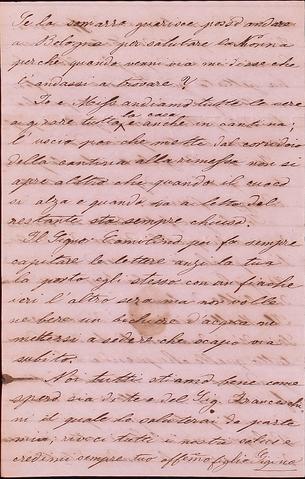 Se la somarra guarisce posso andare
a Bologna per salutare la Nonna
perche quando venni via mi disse che
l'andassi a trovare?
Io e Mess andiamo tutte le sere
a girare tutta la casa e anche in cantina;
l'uscio poi che mette dal corridoio
della cantina alla rimessa non si
apre altro che quando il cuoco
si alza e quando va a letto del
restante sta sempre chiuso.
Il Signor poi fa sempre
capitare le lettere anzi la tua
la portò egli stesso con un fiacre
ieri l'altro sera ma non volle
ne bere un bicchiere d'acqua ne
mettersi a sedere che scapò via
subito.
Noi tutti stiamo bene come
spero sia di te e del Sig. Franceschi
ni il quale lo saluterai da parte
mia; ricevi tutti i nostri saluti e
credimi sempre tuo affemo figlio Gigino